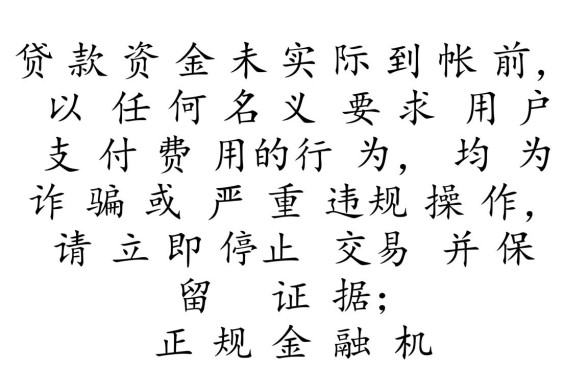 贷款资金未实际到帐前，
以任何名义要求用户
支付费用的行为，均为
诈骗或严重违规操作，
请立即停止交易并保
留证据；
正规金融机